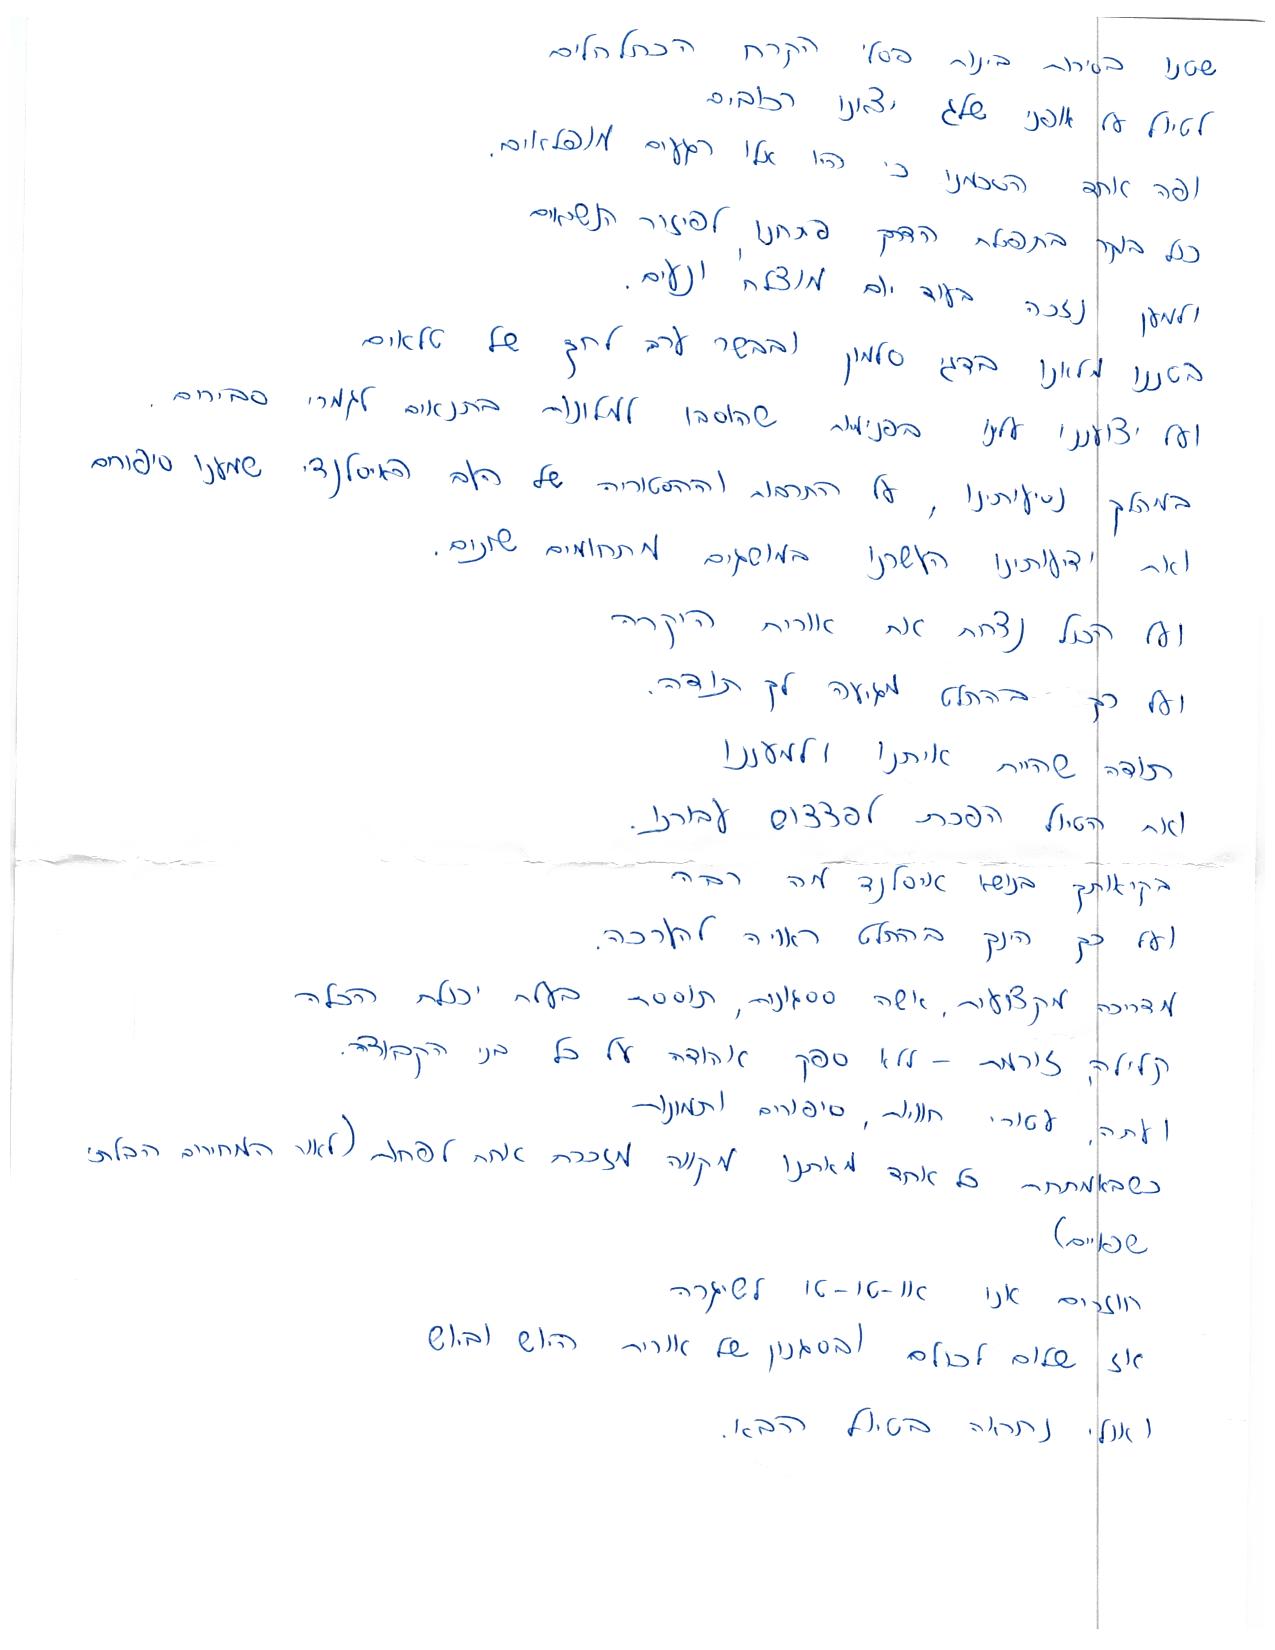 שטנו בסירות בינות פסלי הקרח הכחלחלים
לטיול על אופני שלג יצאנו רכובים
ופה אחד הסכמנו כי היו אלו רגעים מופלאים.
כל בוקר בתפילת הדרך פתחנו, לפיזור העננים
ולמען נזכה בעוד יום מוצלח ונעים.
בטננו מלאנו בדגי סלמון ובבשר ערב לחך של טלאים
ועל יצוענו עלינו בפנימיות שהוסבו למלונות בתנאים לגמרי סבירים.
במהלך נסיעותינו, על התרבות וההסטוריה של העם האיסלנדי שמענו סיפורים
ואת ידיעותינו העשרנו במושגים מתחומים שונים.
ועל הכל נצחת את אורית היקרה
ועל כך בהחלט מגיעה לך תודה.
תודה שהיית איתנו ולמעננו
ואת הטיול הפכת לפצצוש עבורנו.
בקיאותך בנושא איסלנד מה רבה
ועל כך הינך בהחלט ראויה להערכה.
מדריכה מקצועית, אישה ססגונית, תוססת בעלת יכולת הכלה
קלילה, זורמת – ללא ספק אהודה על כל בני הקבוצה.
ועתה, עטורי חוויות, סיפורים ותמונות
כשבאמתחת כל אחד מאתנו מקווה מזכרת אחת לפחות (לאור המחירים הבלתי
שפויים)
חוזרים אנו או-טו-טו לשיגרה
אז שלום לכולם ובסגנון של אורית היוש וביוש
ואולי נתראה בטיול הבא.